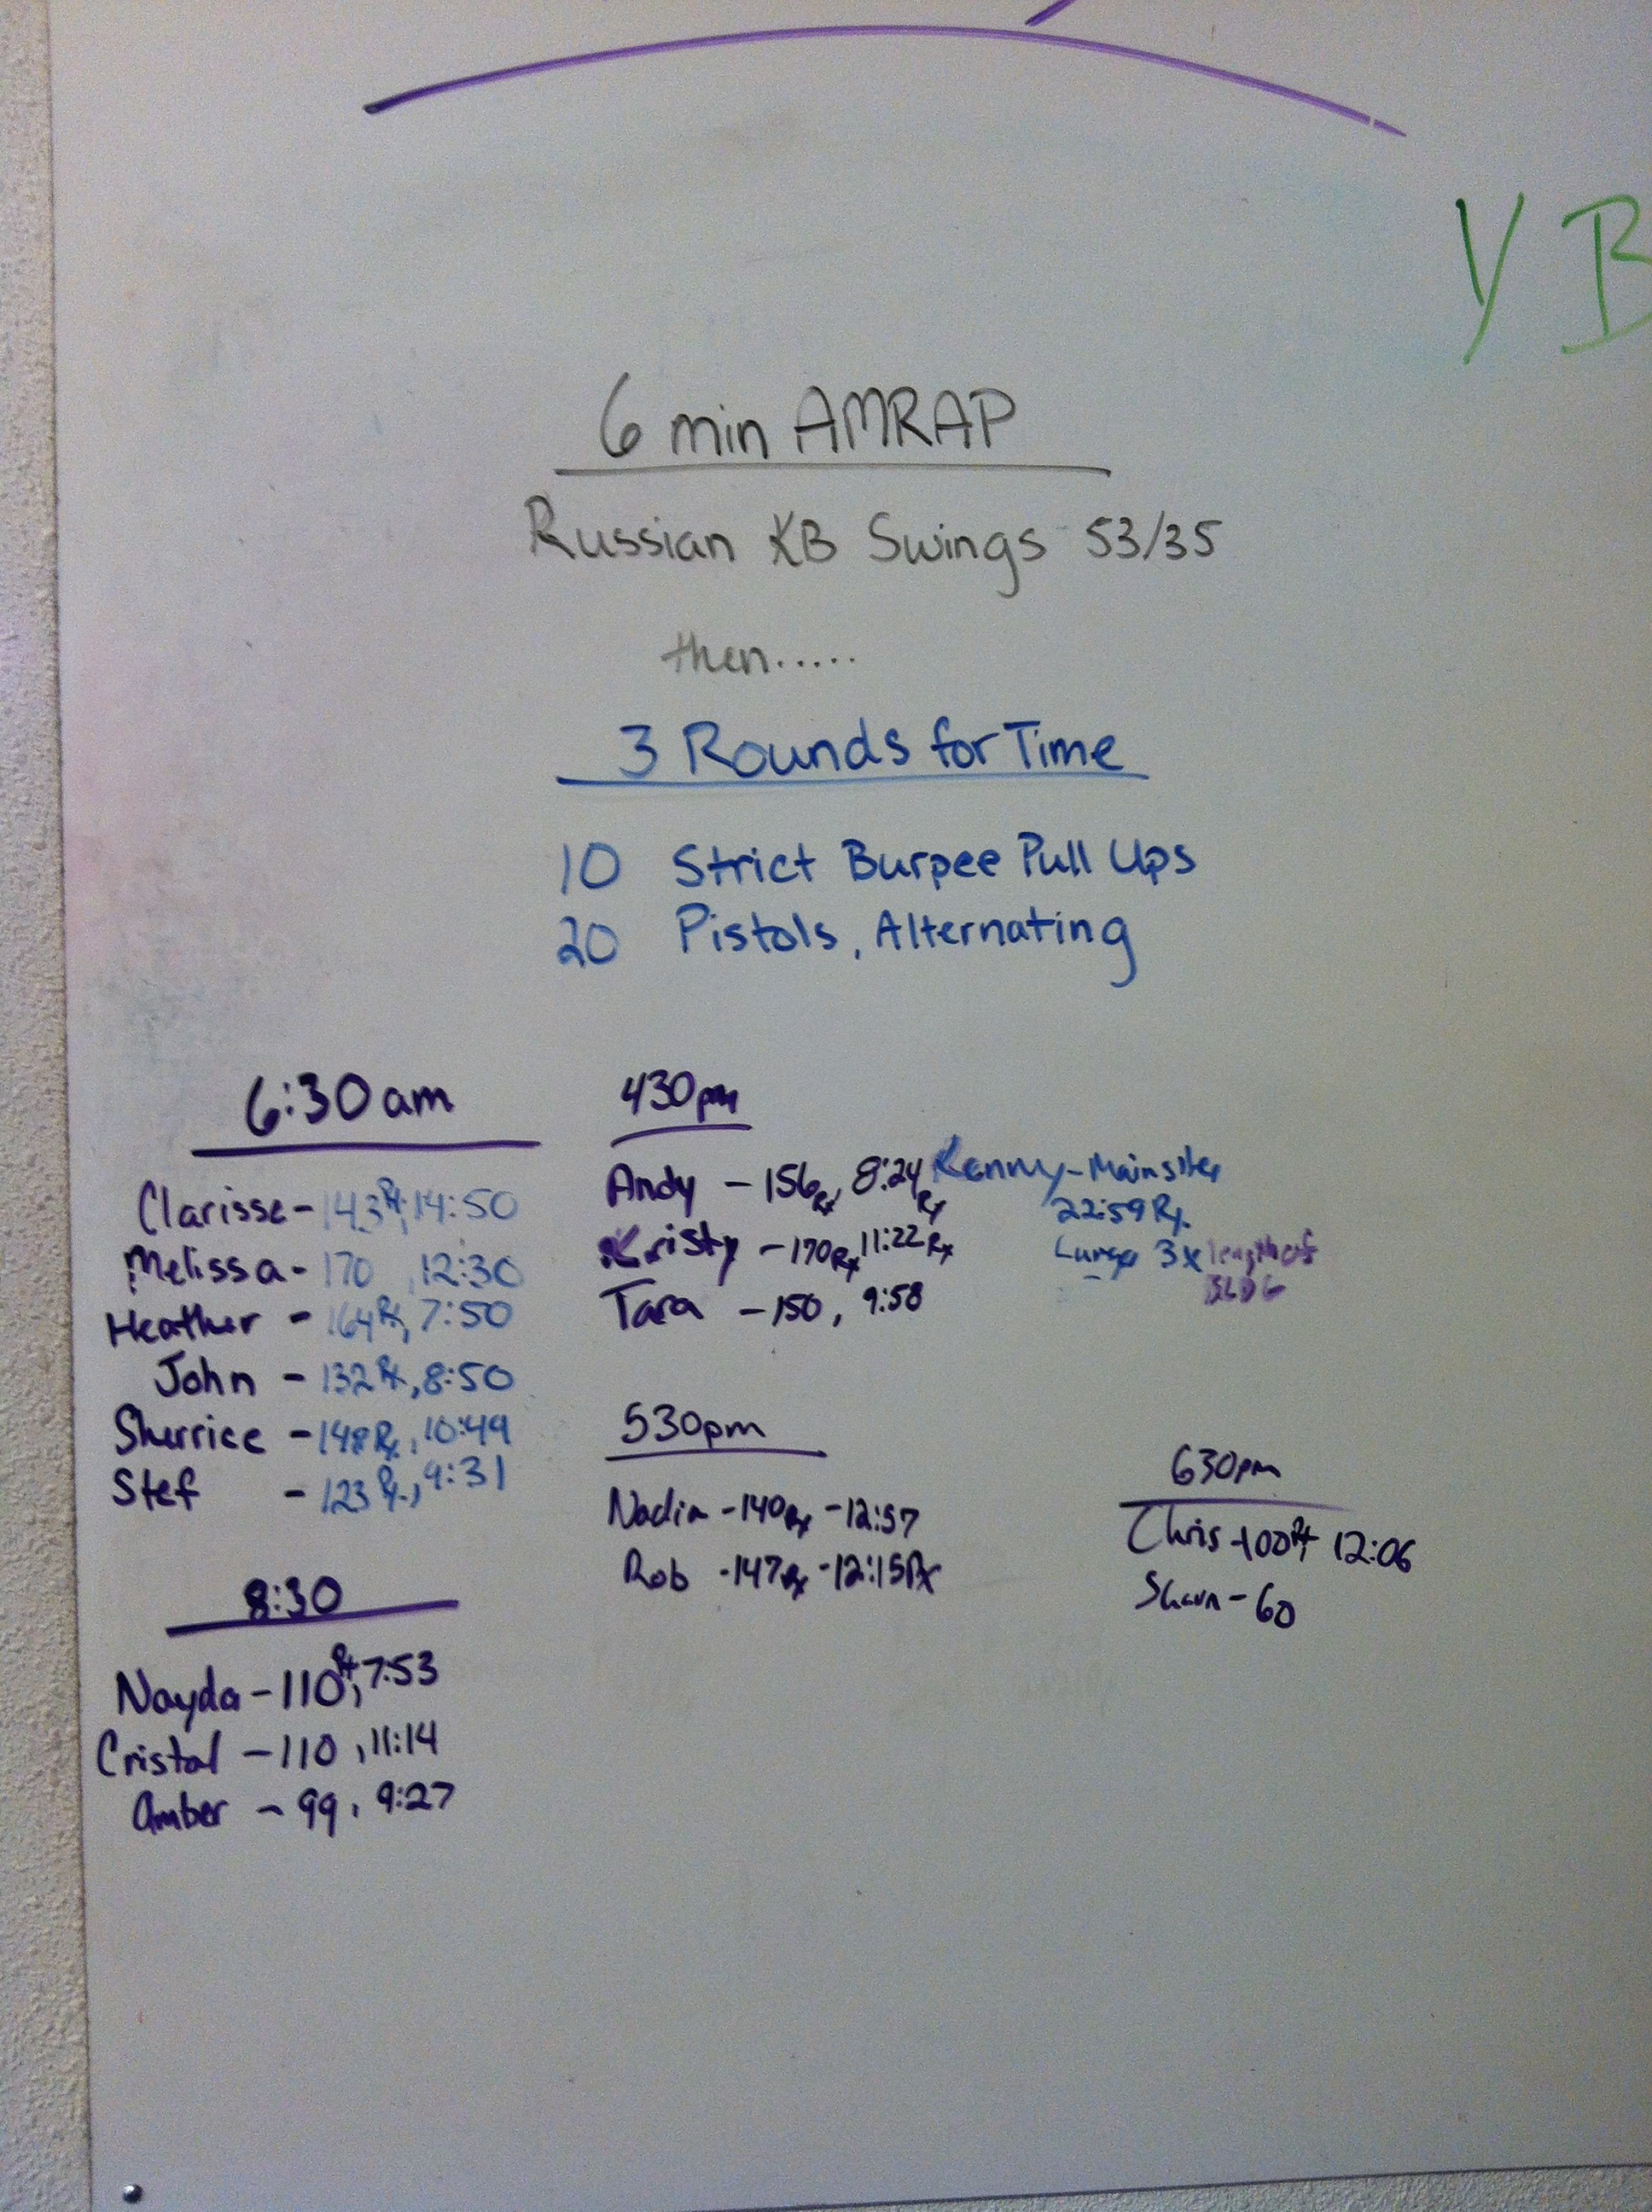 Y B
6 min AMRAP
Russian KB Swings 53/35
then.....
3 Rounds for Time
10 Strict Burpee Pull Ups
20 Pistols, Alternating
6:30am
Clarisse - 143 Rx, 14:50
Melissa - 170, 12:30
Heather - 164 Rx, 7:50
John - 132 Rx, 8:50
Sherrice - 148 Rx, 10:49
Stef - 123 Rx, 9:31
8:30
Nayda - 110 Rx, 7:53
Cristal - 110, 11:14
Amber - 99, 9:27
430pm
Andy - 156 Rx, 8:24 Rx
Kristy - 170 Rx, 11:22 Rx
Tara - 150, 9:58
Kenny - Mainsite
22:59 Rx
Lunge 3x length of
BLDG
530pm
Nadia - 140 Rx - 12:57
Rob - 147 Rx - 12:15 Rx
630pm
Chris - 100 Rx, 12:06
Shaun - 60